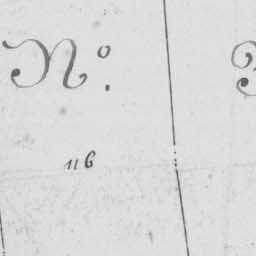 Nº.
116